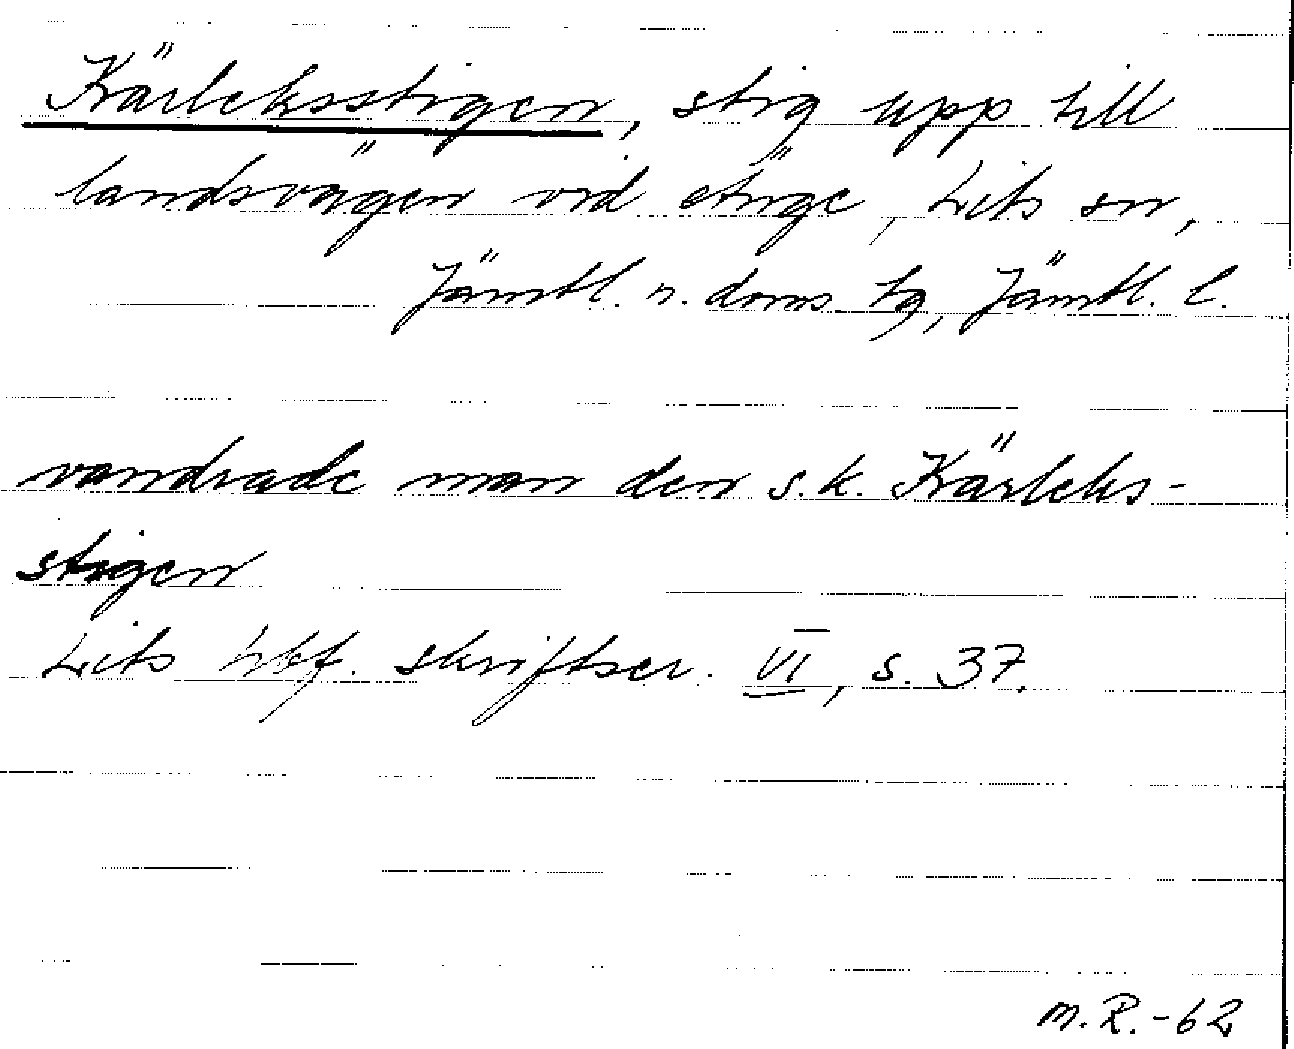 Kärleksstigen, stig upp till
landsvägen vid Änge, Lits sn,
Jämtl. n. doms. tg, Jämtl. l.
vandrade man den s.k. Kärleks-
stigen
Lits hbf. skriftser. VI, s. 37.
M.R.-62